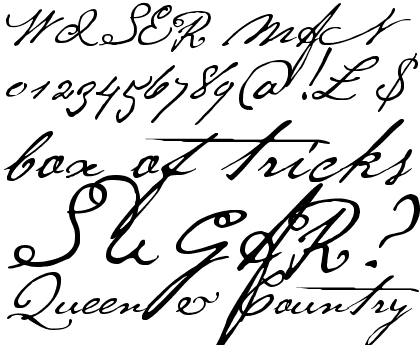 W&SER MAN
0123456789@!£$
box of tricks
SUGAR?
Queen & Country